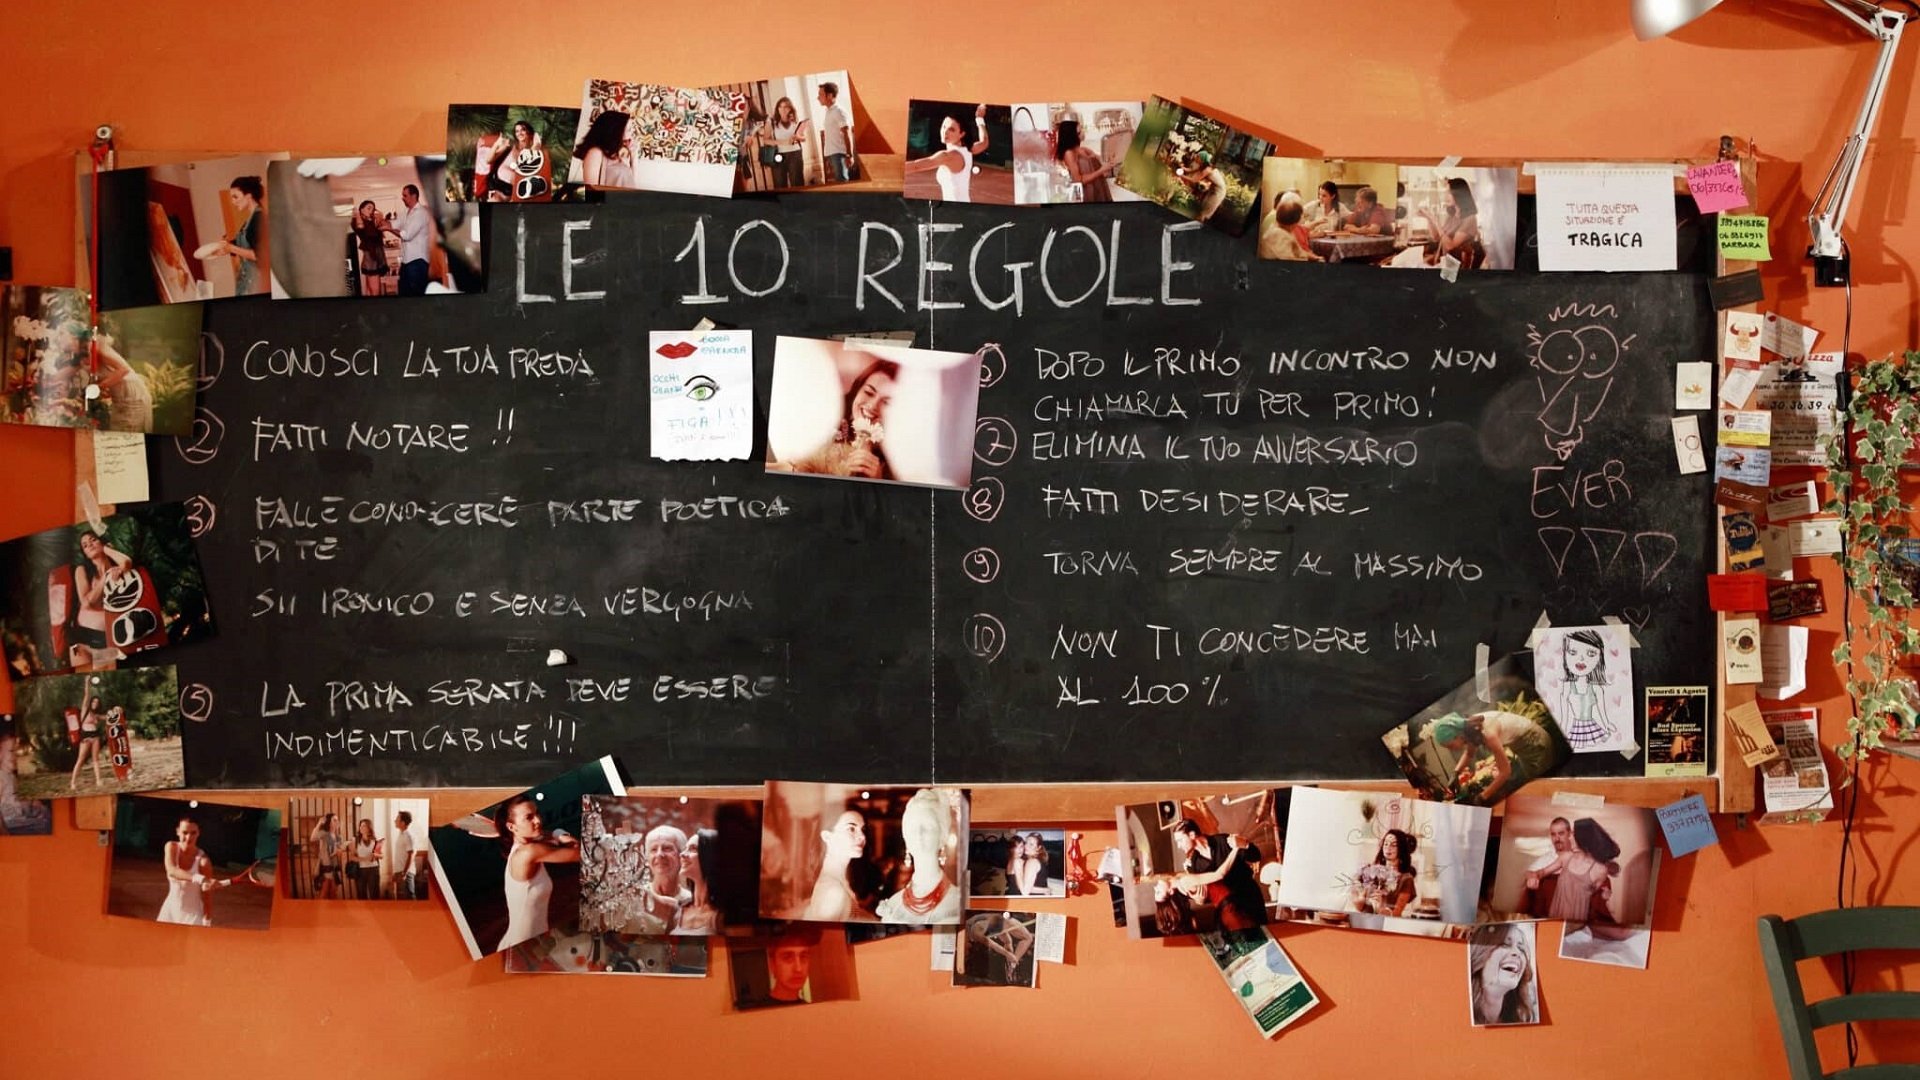 LE 10 REGOLE
1 CONOSCI LA TUA PREDA
2 FATTI NOTARE !!
3 FALLE CONOSCERE PARTE POETICA
DI TE
SII IRONICO E SENZA VERGOGNA
5 LA PRIMA SERATA DEVE ESSERE
INDIMENTICABILE!!!
BOCCA
CARNOSA
OCCHI
GRANDI
FIGA !!!
6 DOPO IL PRIMO INCONTRO NON
CHIAMARLA TU PER PRIMO!
7 ELIMINA IL TUO AVVERSARIO
8 FATTI DESIDERARE
9 TORNA SEMPRE AL MASSIMO
10 NON TI CONCEDERE MAI
AL 100%
EVER
TUTTA QUESTA
SITUAZIONE È
TRAGICA
BARBARA
Venerdì 5 Agosto
Bud Spencer
Blues Explosion